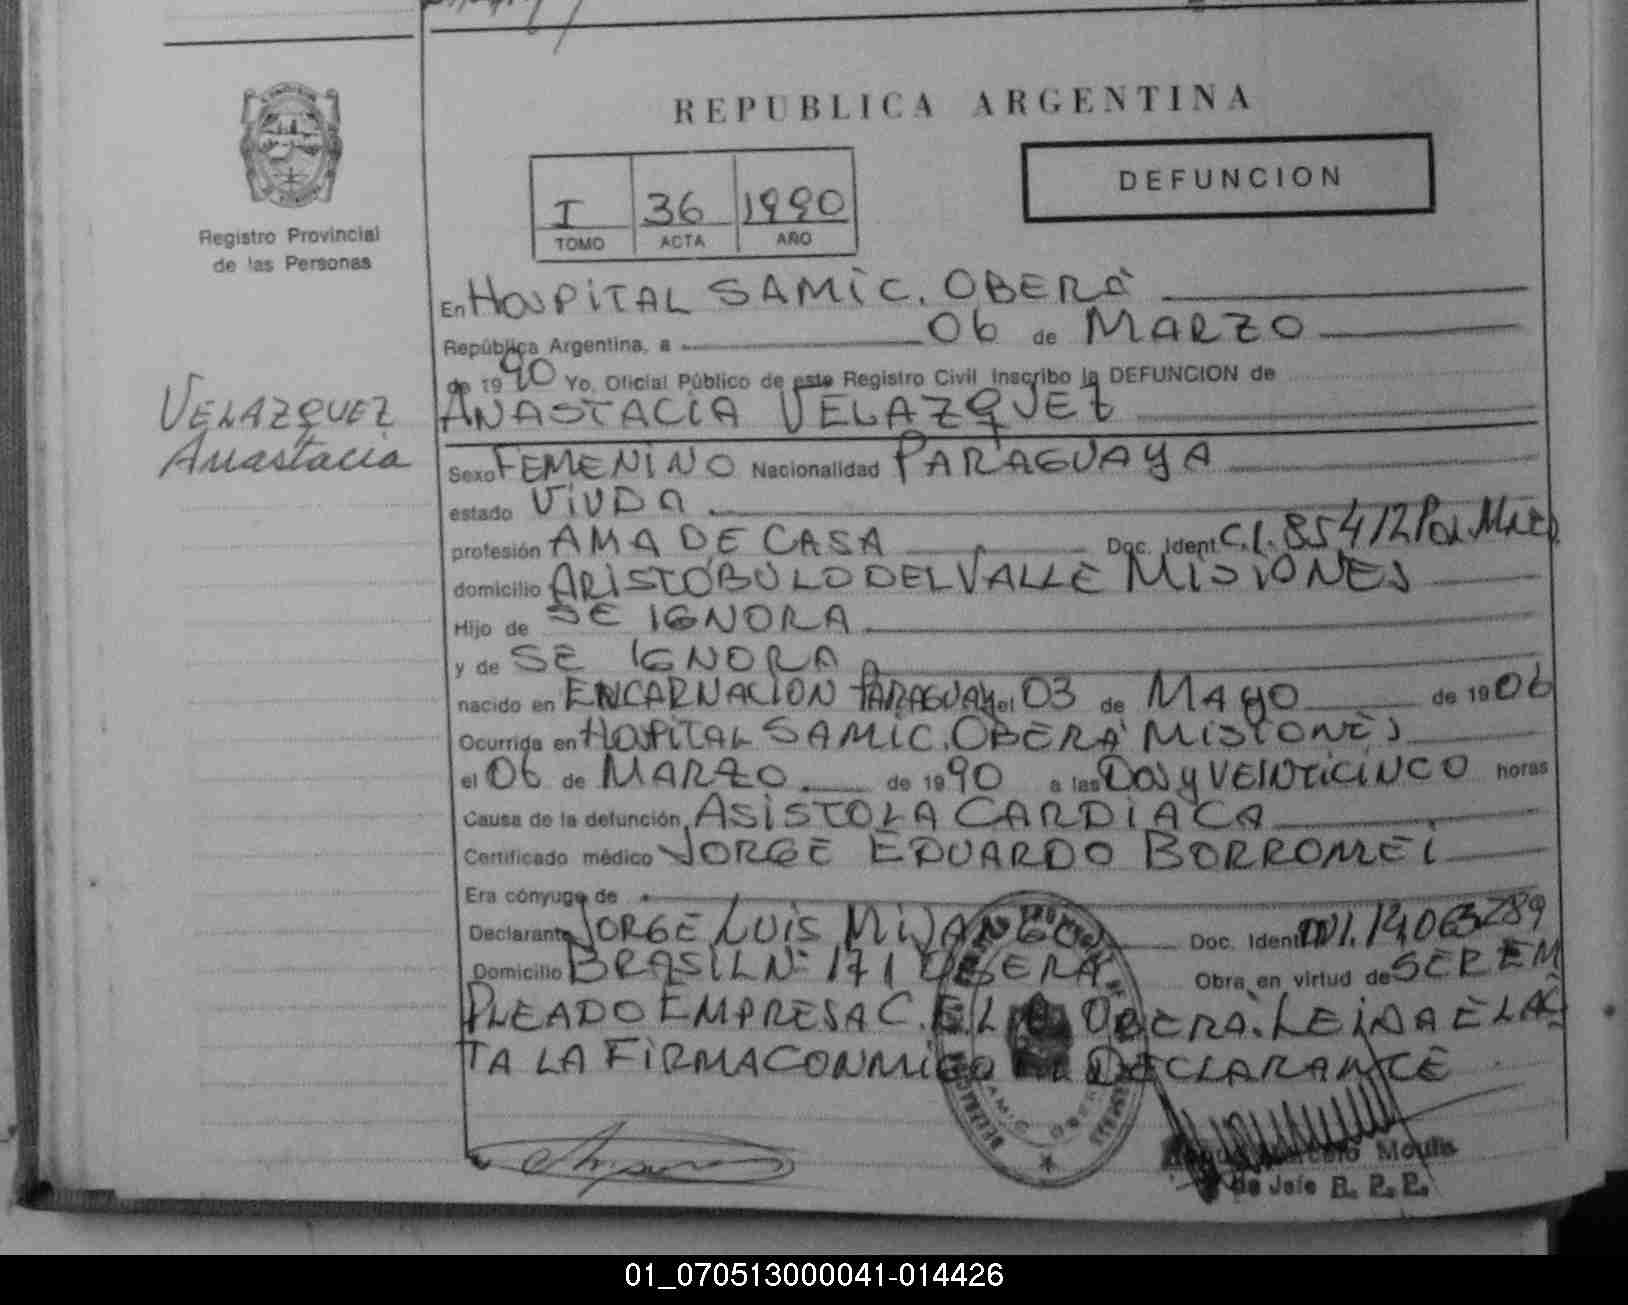 REPUBLICA ARGENTINA
DEFUNCION
I 36 1990
TOMO ACTA AÑO
Registro Provincial
de las Personas
VELAZQUEZ
Anastacia
En HOSPITAL SAMIC. OBERÁ
República Argentina, a 06 de MARZO
de 1990 Yo, Oficial Público de este Registro Civil Inscribo la DEFUNCION de
ANASTACIA VELAZQUEZ
Sexo FEMENINO Nacionalidad PARAGUAYA
estado VIUDA
profesión AMA DE CASA Doc. Ident. C.I. 85412
domicilio ARISTÓBULO DEL VALLE MISIONES
Hijo de SE IGNORA
y de SE IGNORA
nacido en ENCARNACION PARAGUAY el 03 de MAYO de 1906
Ocurrida en HOSPITAL SAMIC. OBERÁ MISIONES
el 06 de MARZO de 1990 a las DOS y VEINTICINCO horas
Causa de la defunción ASISTOLA CARDIACA
Certificado médico JORGE EDUARDO BORROMEI
Era cónyuge de
Declarante JORGE LUIS Doc. Ident. DNI. 14063289
Domicilio BRASIL Nº 171 OBERÁ Obra en virtud de SER EM
PLEADO EMPRESA C.E.L. OBERÁ. LEIDA EL AC
TA LA FIRMA CONMIGO DECLARANTE
Moulis
de Jefe R. P. P.
01_070513000041-014426